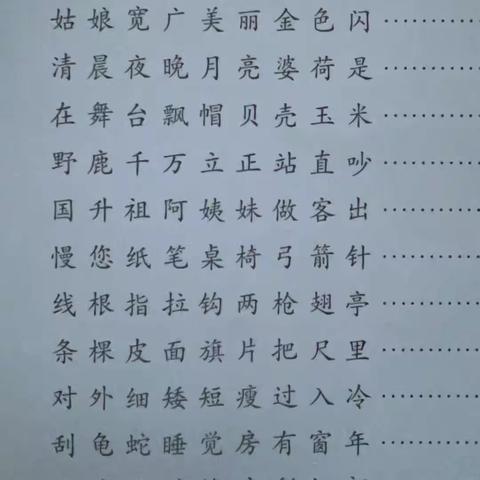 姑娘宽广美丽金色闪…………
清晨夜晚月亮婆荷是…………
在舞台飘帽贝壳玉米…………
野鹿千万立正站直吵…………
国升祖阿姨妹做客出…………
慢您纸笔桌椅弓箭针…………
线根指拉钩两枪翅亭…………
条棵皮面旗片把尺里…………
对外细矮短瘦过入冷…………
刮龟蛇睡觉房有窗年…………